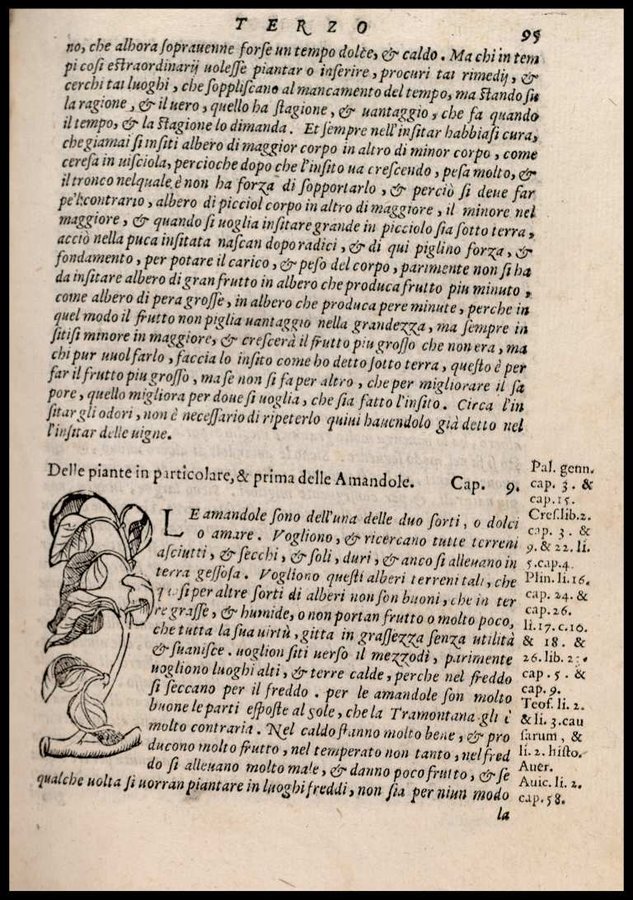 TERZO
95
no, che alhora sopravenne forse un tempo dolce, & caldo. Ma chi in tem
pi cosi estraordinarij uolesse piantar o inserire, procuri tai rimedij, &
cerchi tai luoghi, che suppliscano al mancamento del tempo, ma stando su
la ragione, & il uero, quello ha stagione, & uantaggio, che fa quando
il tempo, & la stagione lo dimanda. Et sempre nell'insitar habbiasi cura,
che giamai si insiti albero di maggior corpo in altro di minor corpo, come
ceresa in uisciola, percioche dopo che l'insito ua crescendo, pesa molto, &
il tronco nelquale è non ha forza di sopportarlo, & perciò si deue far
pe'l contrario, albero di picciol corpo in altro di maggiore, il minore nel
maggiore, & quando si uoglia insitare grande in picciolo sia sotto terra,
acciò nella puca insitata nascan dopo radici, & di qui piglino forza, &
fondamento, per potare il carico, & peso del corpo, parimente non si ha
da insitare albero di gran frutto in albero che produca frutto piu minuto,
come albero di pera grosse, in albero che produca pere minute, perche in
quel modo il frutto non piglia uantaggio nella grandezza, ma sempre in
sitisi minore in maggiore, & crescerà il frutto piu grosso che non era, ma
chi pur uuol farlo, faccia lo insito come ho detto sotto terra, questo è per
far il frutto piu grosso, ma se non si fa per altro, che per migliorare il sa
pore, quello migliora per doue si uoglia, che sia fatto l'insito. Circa l'in
sitar gli odori, non è necessario di ripeterlo quiui hauendolo già detto nel
l'insitar delle uigne.
Delle piante in particolare, & prima delle Amandole. Cap. 9.
LE amandole sono dell'una delle duo sorti, o dolci
o amare. Vogliono, & ricercano tutte terreni
asciutti, & secchi, & soli, duri, & anco si alleuano in
terra gessosa. Vogliono questi alberi terreni tali, che
quasi per altre sorti di alberi non son buoni, che in ter
re grasse, & humide, o non portan frutto o molto poco,
che tutta la sua uirtù, gitta in grassezza senza utilità
& suanisce. uoglion siti uerso il mezzodì, parimente
uogliono luoghi alti, & terre calde, perche nel freddo
si seccano per il freddo. per le amandole son molto
buone le parti esposte al sole, che la Tramontana gli è
molto contraria. Nel caldo stanno molto bene, & pro
ducono molto frutto, nel temperato non tanto, nel fred
do si alleuano molto male, & danno poco frutto, & se
qualche uolta si uorran piantare in luoghi freddi, non sia per niun modo
la
Pal. genn.
cap. 3. &
cap. 15.
Cres. lib. 2.
cap. 3. &
9. & 22. li.
5. cap. 4.
Plin. li. 16.
cap. 24. &
cap. 26.
li. 17. c. 10.
& 18. &
26. lib. 23.
cap. 5. &
cap. 9.
Teof. li. 2.
& li. 3. cau
sarum, &
li. 2. histo.
Auer.
Auic. li. 2.
cap. 58.